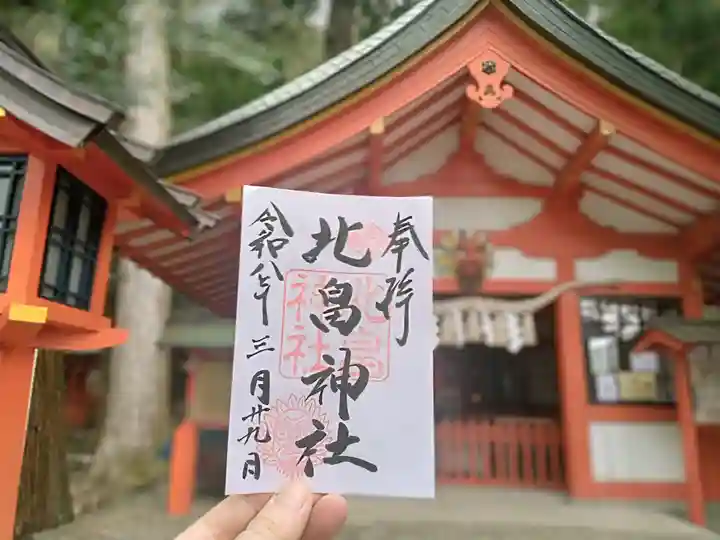 奉拝
北畠神社
北畠神社
令和八年三月廿九日